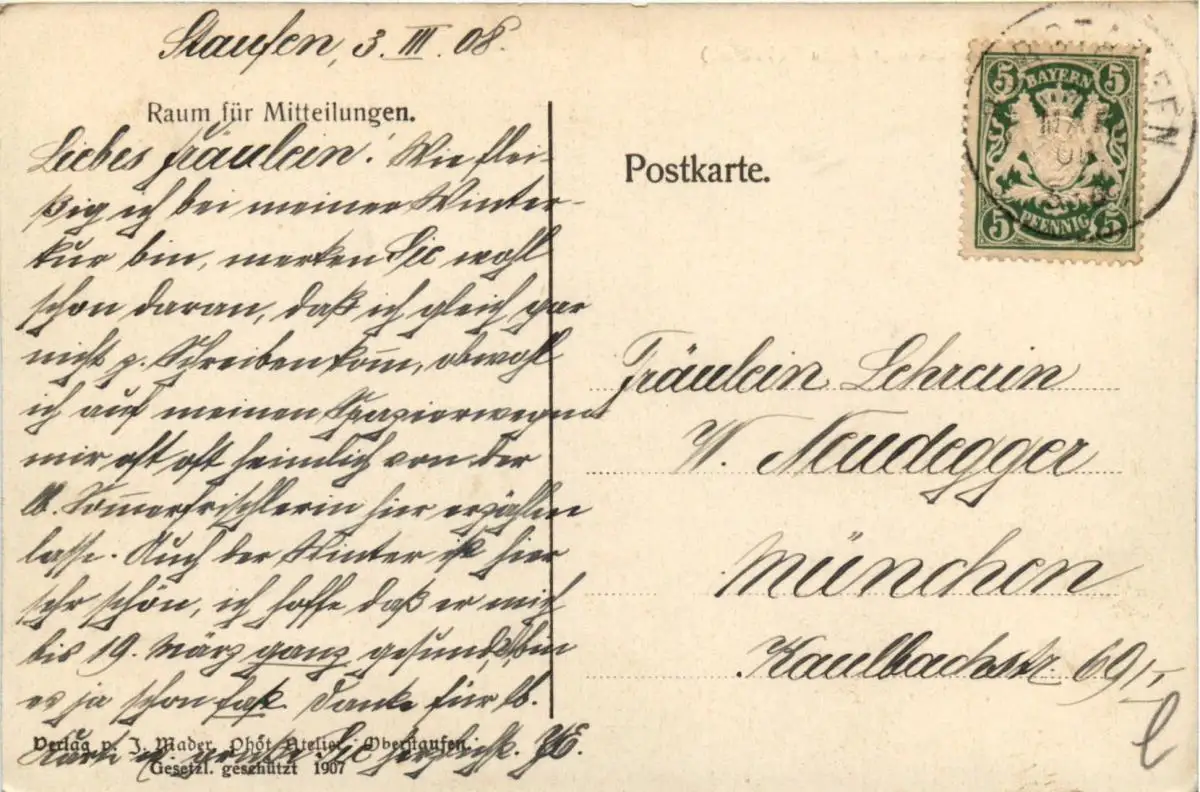 Staufen, 3. III 08.
Raum für Mitteilungen.
Liebes Fräulein! Wie flei-
ßig ich bei meiner Winter-
kur bin, merken Sie wohl
schon daran, daß ich gleich gar
nicht z. Schreiben kom̄, obwohl
ich auf meinen Spazierwegen
mir oft oft heimlich von der
lb. Som̄erfrischlerin hier erzählen
lasse. Auch der Winter ist hier
sehr schön, ich hoffe daß er mich
bis 19. März ganz gesund, bin
es ja schon fast. Danke für lb.
Karte u. grüße Sie herzlichst.
Verlag v. J. Mader, Phot. Atelier, Oberstaufen.
Gesetzl. geschützt 1907
Postkarte.
5 5
BAYERN
PFENNIG
5 5
Fräulein Lehrerin
W. Neudegger
München
Kaulbachstr. 69/I